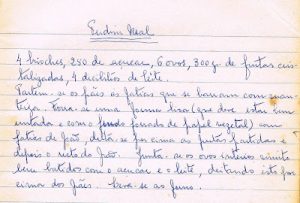 Pudim Real
4 brioches, 250 de açucar, 6 ovos, 300 gr. de frutas cris-
talizadas, 4 decilitros de leite.
Partem-se os pães ás fatias que se barram com man-
teiga. Forra-se uma forma lisa (que deve estar
untada e com o fundo forrado de papel vegetal) com
fatias de pão, deita-se por cima as frutas partidas e
depois o resto do pão. Junta-se os ovos inteiros muito
bem batidos com o açucar e o leite, deitando isto por
cima dos pães. Leva-se ao forno.